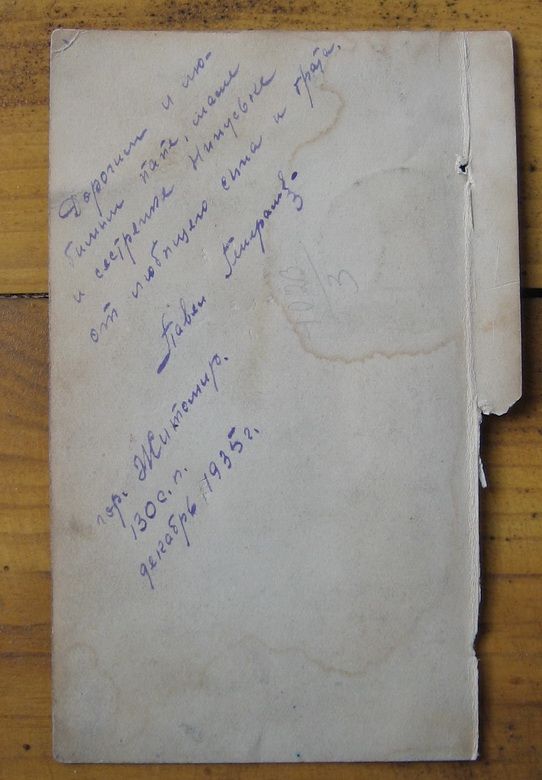 Дорогим и лю-
бимым папе, маме
и сестренке Нинуське
от любящего сына и брата.
Павел
гор. Житомир.
130 с. п.
декабрь 1935 г.